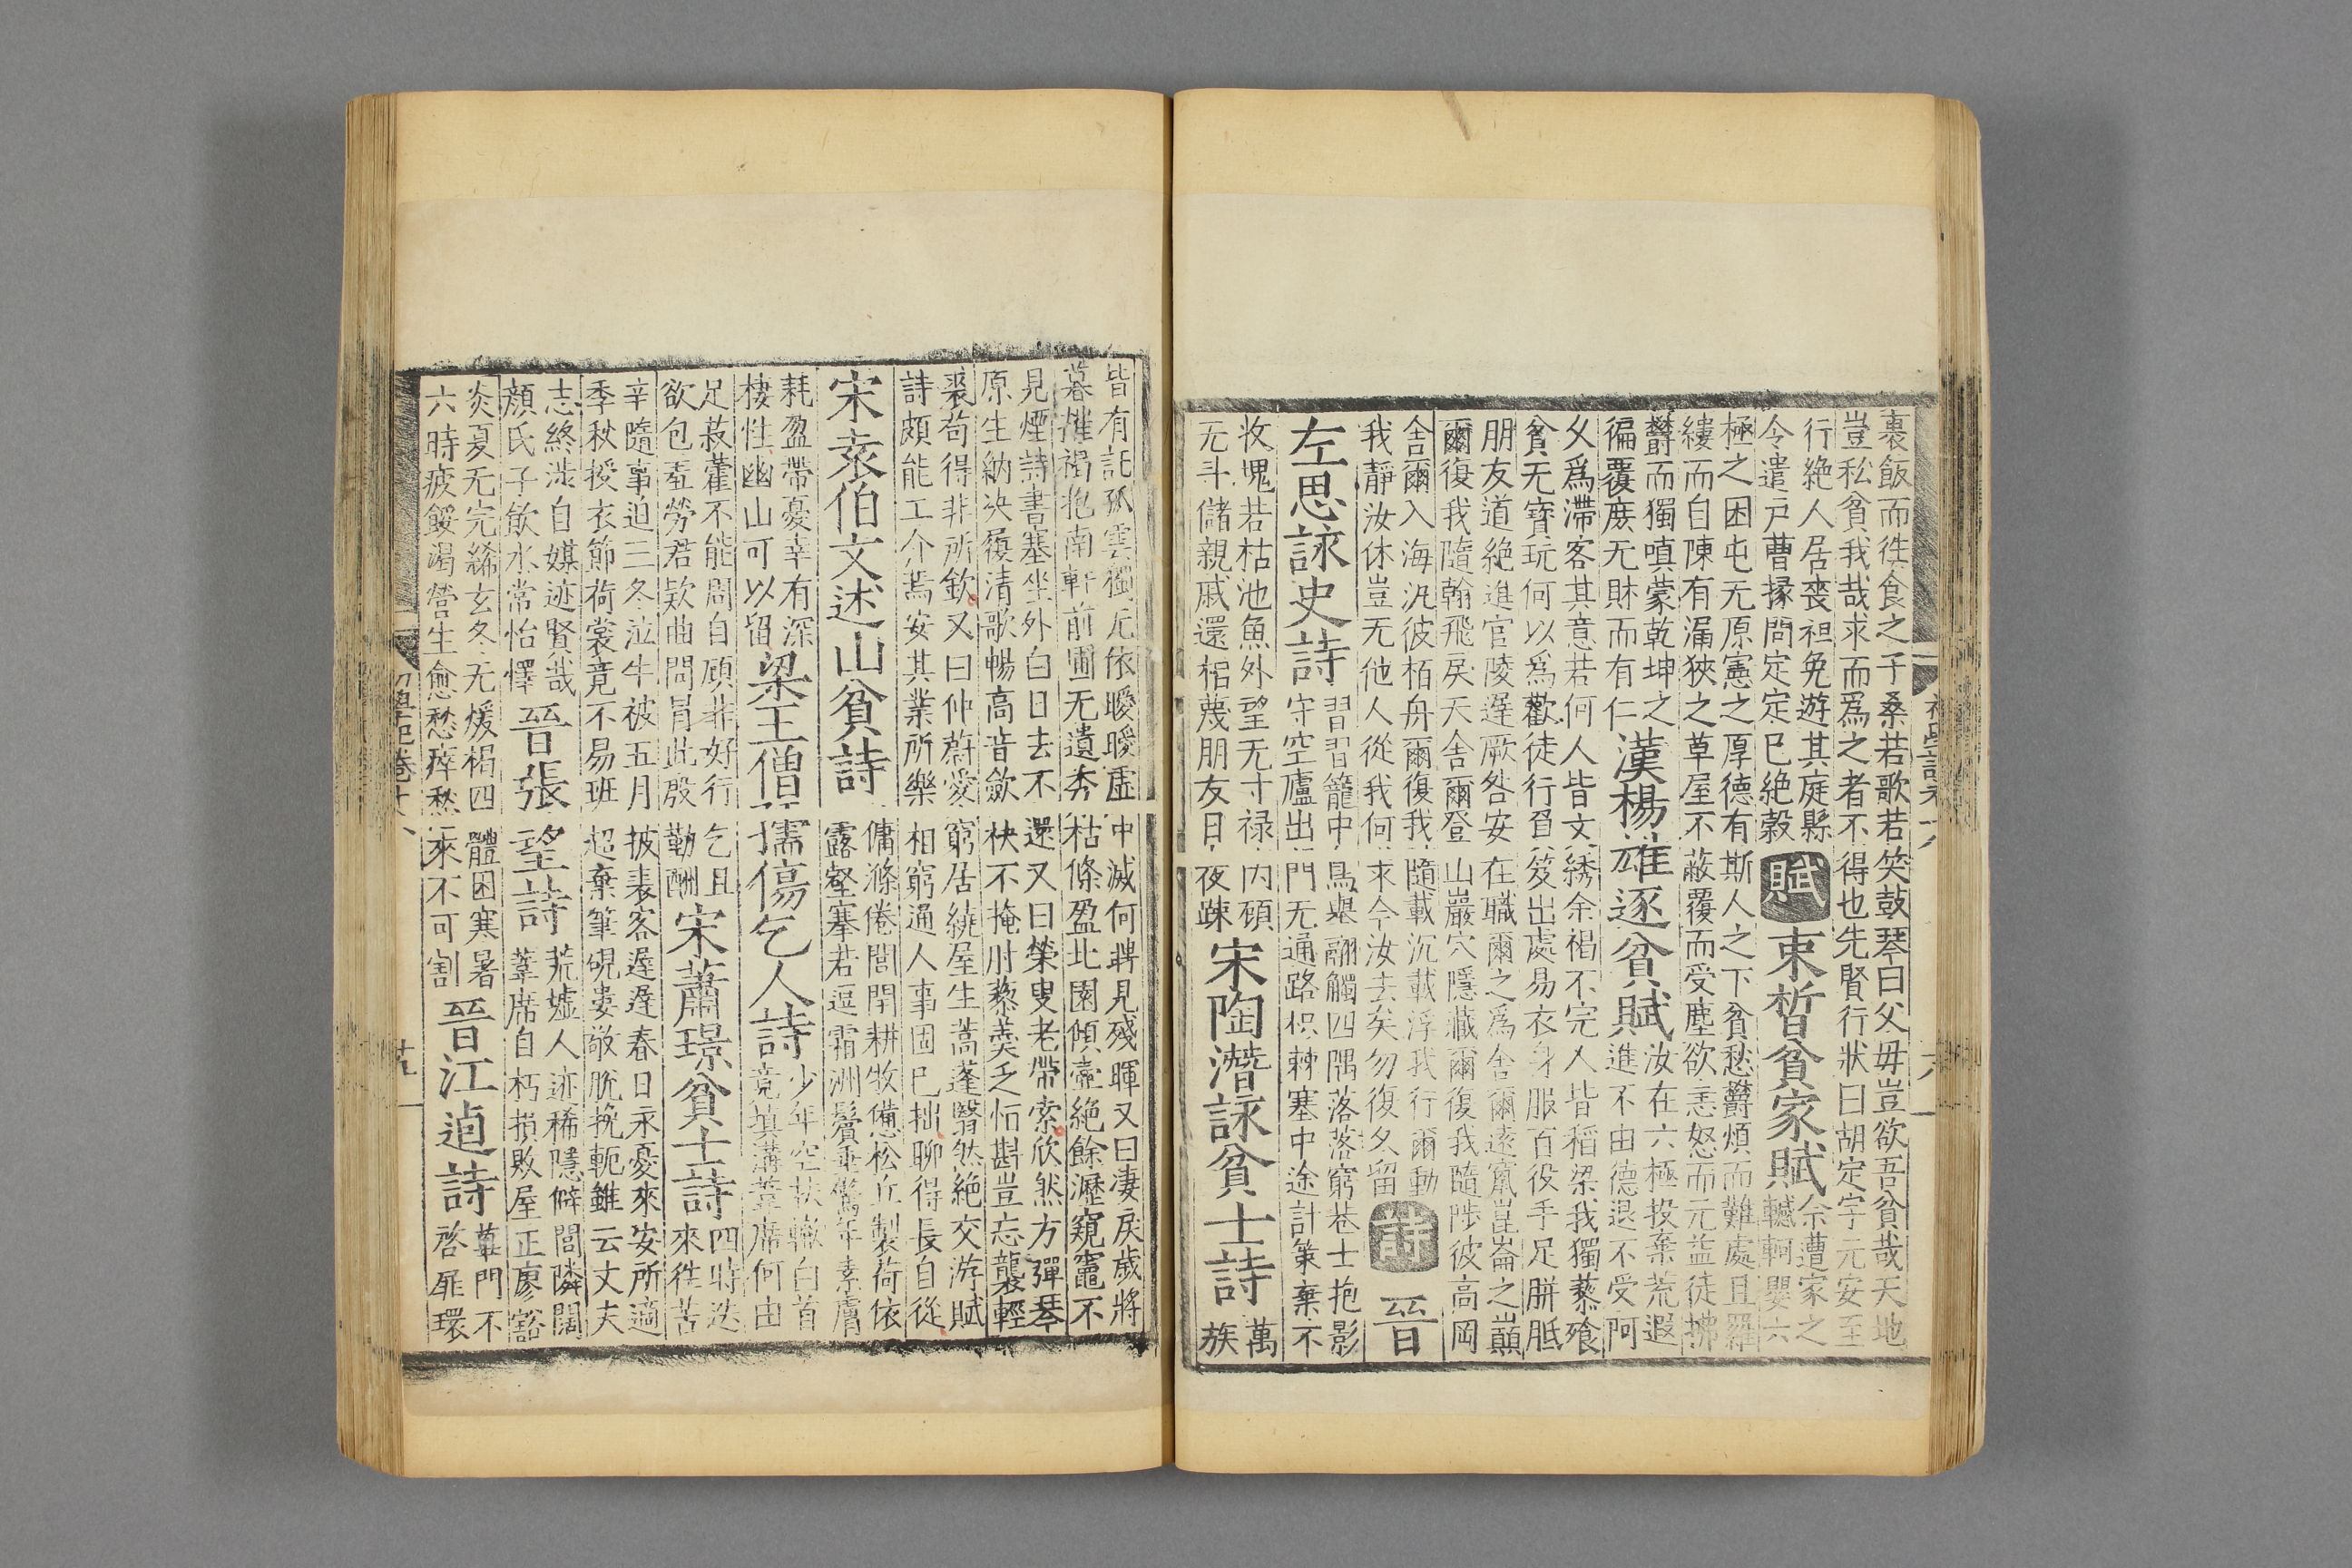 裹飯而徃食之子桑若歌若笑鼓琴曰父毋豈欲吾貧哉天地
豈私貧我哉求而爲之者不得也先賢行狀曰胡定字元安至
行絶人居喪袒免遊其庭縣
令遣戸曹掾問定定已絶穀
賦 束晳貧家賦
余遭家之
轗軻嬰六
極之困屯无原憲之厚德有斯人之下貧愁欝煩而難處且羅
縷而自陳有漏狹之草屋不蔽覆而受塵欲恚怒而元益徒拂
欝而獨嗔蒙乾坤之
徧覆庻无財而有仁
漢楊雄逐貧賦
汝在六極投棄荒遐
進不由德退不受阿
父爲滯客其意若何人皆文綉余褐不完人皆稻粱我獨藜飱
貧无寶玩何以爲歡徒行負笈出處易衣身服百役手足胼胝
朋友道絶進官陵遲厥咎安在職爾之爲舎爾逺竄崑崙之巔
爾復我隨翰飛戾天舎爾登山巖穴隱藏爾復我隨陟彼高岡
舎爾入海汎彼栢舟爾復我隨載沉載浮我行爾動
我靜汝休豈无他人從我何求今汝去矣勿復久留
詩 晉
左思詠史詩
習習籠中鳥舉翮觸四隅落落窮巷士抱影
守空廬出門无通路枳棘塞中途計策棄不
收塊若枯池魚外望无寸禄内碩
无斗儲親戚還相蔑朋友日夜踈
宋陶潛詠貧士詩
萬
族
皆有託孤雲獨无依曖曖虛中滅何見殘暉又曰淒戾歲將
暮摧褐抱南軒前圃无遺秀枯條盈北園傾壷絶餘瀝窺竈不
見煙詩書塞坐外白日去不還又曰榮叟老帶索欣然方彈琴
原生納决履清歌暢高音歛袂不掩肘藜羮乏恒斟豈忘襲輕
裘苟得非所欽又曰仲蔚愛窮居繞屋生蒿蓬翳然絶交游賦
詩頗能工介焉安其業所樂相窮通人事固已拙聊得長自從
宋袁伯文述山貧詩
傭滌倦閭閈耕牧憊松丘製荷依
露壑搴若逗霜洲鬢垂驚年素膚
耗盈帶憂幸有深
棲性幽山可以留
梁王僧孺傷乞人詩
少年空扶轍白首
竟填溝葦席何由
足菽藿不能周自顧非好行乞且
欲包羞勞君欵曲問冐此殷勤酬
宋蕭璟貧士詩
四時迭
來徃苦
辛隨事迫三冬泣牛被五月披裘客遲遲春日永憂來安所適
季秋授衣節荷裳竟不易班超棄筆硯婁敬脫挽軛雖云丈夫
志終涉自媒迹賢哉
顔氏子飮水常怡懌
晉張望詩
荒墟人迹稀隱僻閭隣闊
葦席自朽損敗屋正寥豁
炎夏无完絺玄冬无煖褐四體困寒暑
六時疲餒渴營生愈愁瘁愁來不可割
晉江逌詩
蓽門不
啓扉環